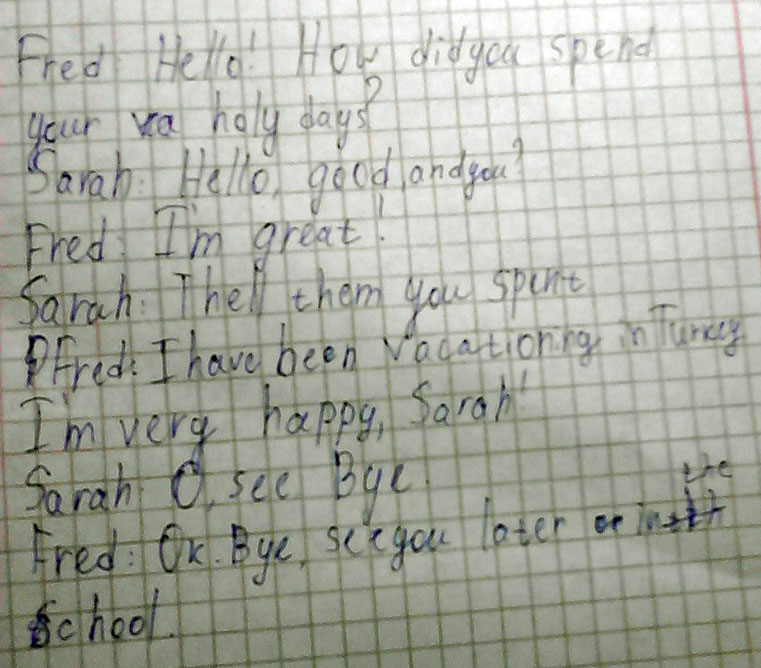 Fred: Hello! How did you spend
your va holy days?
Sarah: Hello, good, and you?
Fred: I'm great!
Sarah: Thell them you spent
Fred: I have been vacationing in Turkey
I'm very happy, Sarah!
Sarah: O, see Bye.
Fred: Ok. Bye, see you later or in the
School.